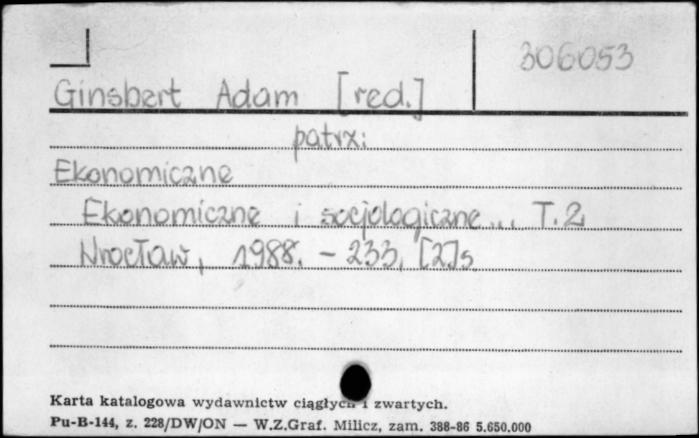 306053
Ginsbert Adam [red.]
patrz:
Ekonomiczne
Ekonomiczne i socjologiczne... T.2
Wrocław, 1988. - 233, [2]s
Karta katalogowa wydawnictw ciągłych i zwartych.
Pu-B-144, z. 228/DW/ON — W.Z.Graf. Milicz, zam. 388-86 5.650.000